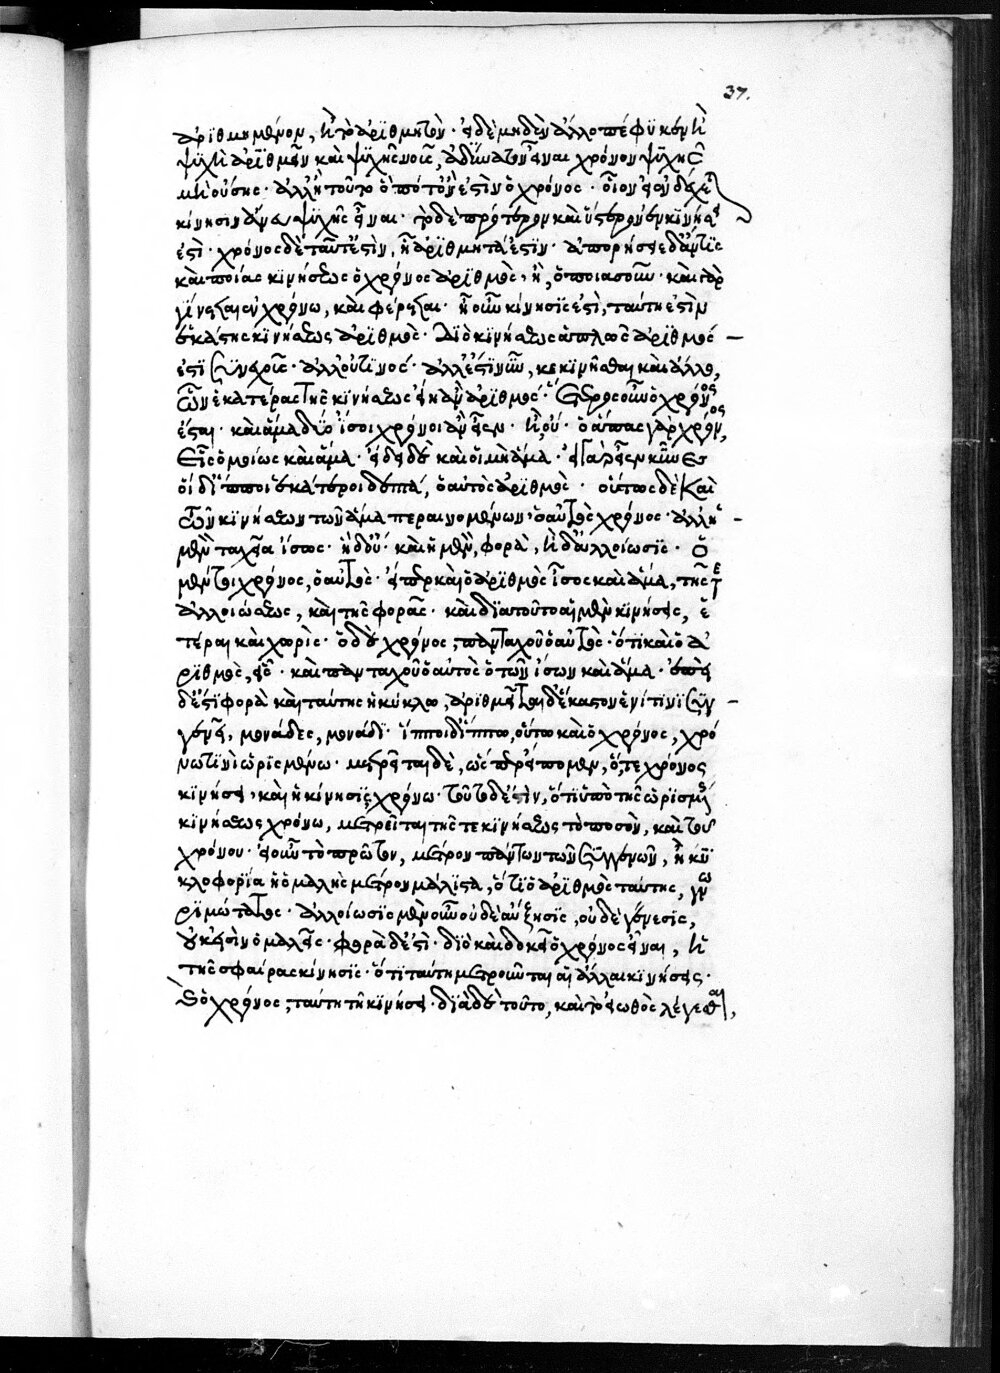 37.
ἀριθμημένον, ἢ τὸ ἀριθμητόν· εἰ δὲ μηδὲν ἄλλο πέφυκεν ἢ
ψυχὴ ἀριθμεῖν καὶ ψυχῆς νοῦς, ἀδύνατον εἶναι χρόνον ψυχῆς
μὴ οὔσης· ἀλλ' ἢ τοῦτο ὅ ποτὸν ἐστὶν ὁ χρόνος· οἷον εἰ ἐνδέχεται
κίνησιν ἄνευ ψυχῆς εἶναι· τὸ δὲ πρότερον καὶ ὕστερον ἐν κινήσει
ἐστί· χρόνος δὲ ταῦτ' ἐστὶν, ᾗ ἀριθμητά ἐστιν· ἀπορήσειε δ' ἄν τις
καὶ ποίας κινήσεως ὁ χρόνος ἀριθμός· ἢ, ὁποιασοῦν· καὶ γὰρ
γίνεται ἐν χρόνῳ, καὶ φέρεται· ᾗ οὖν κίνησίς ἐστι, ταύτῃ ἐστὶν
ἑκάστης κινήσεως ἀριθμός· διὸ κινήσεως ἁπλῶς ἀριθμός
ἐστι συνεχοῦς· ἀλλ' οὔ τινος· ἀλλ' ἔστι νῦν, κεκινῆσθαι καὶ ἄλλο,
ὧν ἑκατέρας τῆς κινήσεως εἴη ἂν ἀριθμός· ἕτερος οὖν ὁ χρόνος
ἔσται· καὶ ἅμα δύο ἴσοι χρόνοι ἂν εἶεν· ἢ, οὔ· ὁ ἅπας γὰρ χρόνος,
εἷς ὁμοίως καὶ ἅμα· εἴδει δὲ καὶ οἱ μὴ ἅμα· εἰ γὰρ εἶεν κύνες
οἱ δ' ἵπποι ἑκάτεροι δ' ἑπτά, ὁ αὐτὸς ἀριθμός· οὕτως δὲ καὶ
τῶν κινήσεων τῶν ἅμα περαινομένων· ὁ αὐτὸς χρόνος· ἀλλ' ἡ
μὲν ταχεῖα ἴσως· ἡ δ' οὔ· καὶ ἡ μὲν, φορὰ, ἡ δ' ἀλλοίωσις· ὁ
μέντοι χρόνος, ὁ αὐτός· εἴπερ καὶ ὁ ἀριθμὸς ἴσος καὶ ἅμα, τῆς τε
ἀλλοιώσεως, καὶ τῆς φορᾶς· καὶ διὰ τοῦτο αἱ μὲν κινήσεις, ἕ
τεραι καὶ χωρίς· ὁ δὲ χρόνος, πανταχοῦ ὁ αὐτός· ὅτι καὶ ὁ ἀ
ριθμὸς, εἷς· καὶ πανταχοῦ ὁ αὐτὸς ὁ τῶν ἴσων καὶ ἅμα· ἐπεὶ
δ' ἔστι φορὰ καὶ ταύτης ἡ κύκλῳ, ἀριθμεῖται δ' ἕκαστον ἑνί τινι συγ
γενεῖ, μονάδες, μονάδι· ἵπποι δ' ἵππῳ, οὕτω καὶ ὁ χρόνος, χρό
νῳ τινὶ ὡρισμένῳ· μετρεῖται δὲ, ὡς περ εἴπομεν, ὅ, τε χρόνος
κινήσει, καὶ ἡ κίνησις, χρόνῳ· τοῦτο δέ ἐστιν, ὅτι ὑπὸ τῆς ὡρισμένης
κινήσεως χρόνῳ, μετρεῖται τῆς τε κινήσεως τὸ ποσὸν, καὶ τοῦ
χρόνου· εἰ οὖν τὸ πρῶτον, μέτρον πάντων τῶν συγγενῶν, ἡ κυ
κλοφορία ἡ ὁμαλὴς μέτρον μάλιστα, ὅτι ὁ ἀριθμὸς ταύτης, γνω
ριμώτατος· ἀλλοίωσις μὲν οὖν οὐδὲ αὔξησις, οὐδὲ γένεσις,
οὐκ εἰσὶν ὁμαλεῖς· φορὰ δ' ἐστί· διὸ καὶ δοκεῖ ὁ χρόνος εἶναι, ἡ
τῆς σφαίρας κίνησις· ὅτι ταύτῃ μετροῦνται αἱ ἄλλαι κινήσεις·
καὶ ὁ χρόνος, ταύτῃ τῇ κινήσει· διὰ δὲ τοῦτο, καὶ τὸ εἰωθὸς λέγεσθαι,